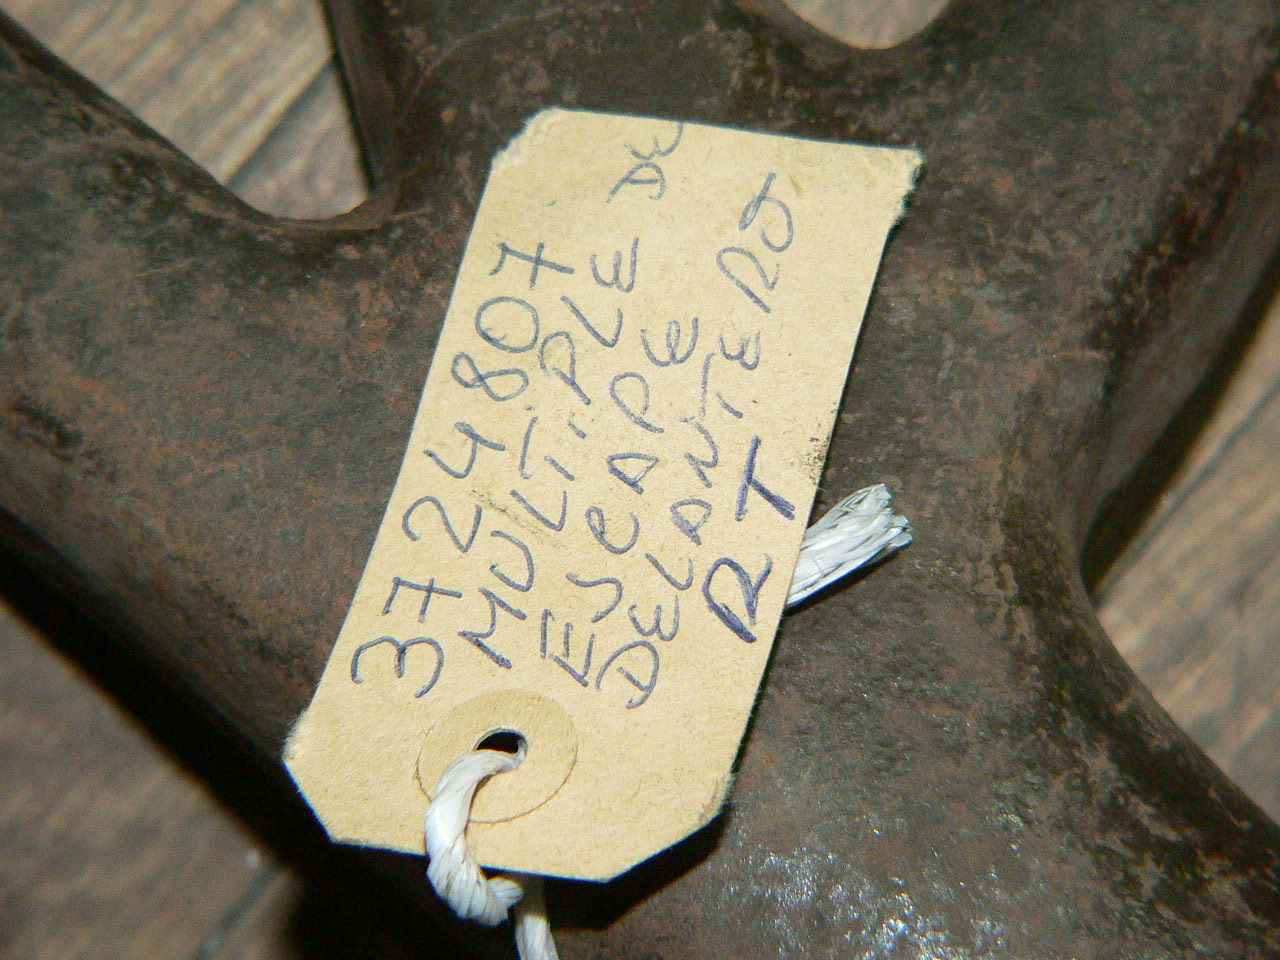 3724807
MULTIPLE DE
ESCAPE
DELANTERO
RT